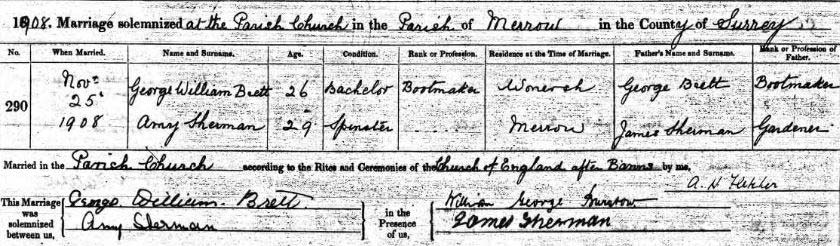 1908. Marriage solemnized at the Parish Church in the Parish of Merrow in the County of Surrey
No. When Married. Name and Surname. Age. Condition. Rank or Profession. Residence at the Time of Marriage. Father's Name and Surname. Rank or Profession of Father.
290 Novr 25 1908
George William Brett 26 Bachelor Bootmaker Wonersh George Brett Bootmaker
Amy Sherman 29 Spinster Merrow James Sherman Gardener
Married in the Parish Church according to the Rites and Ceremonies of the Church of England after Banns by me,
A. H
This Marriage was solemnized between us,
George William Brett
Amy Sherman
in the Presence of us,
William George
James Sherman